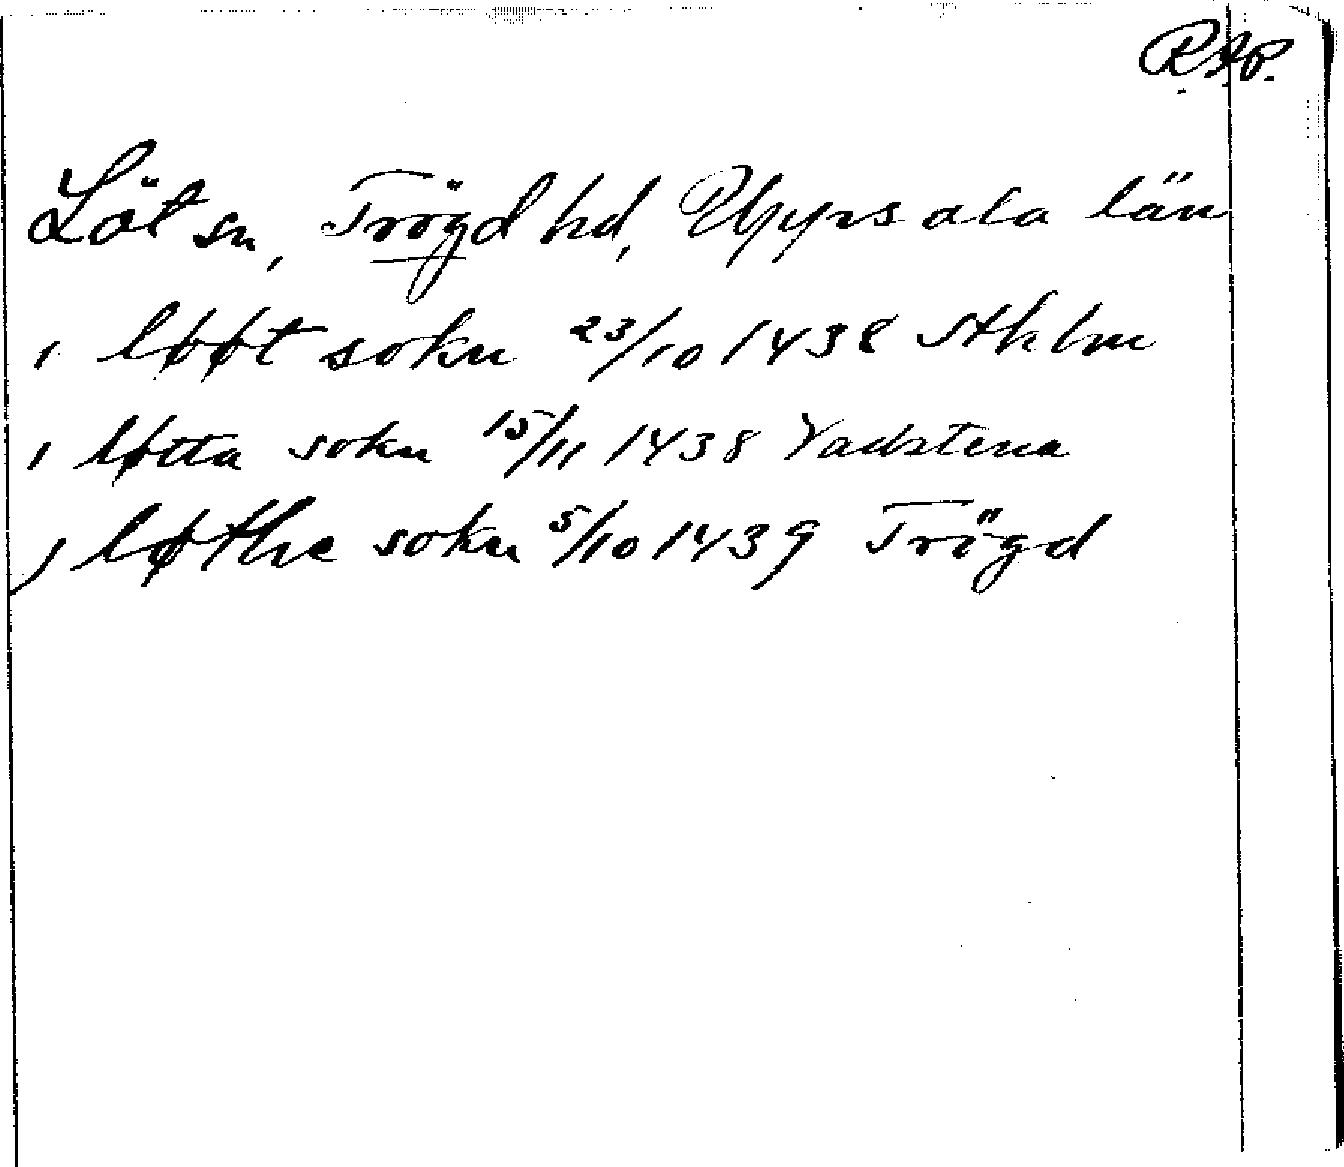 R.A.P.
Löt sn, Trögd hd, Uppsala län
i løøt sokn 23/10 1438 Sthlm
i løtta sokn 15/11 1438 Vadstena
i løthe sokn 5/10 1439 Trögd